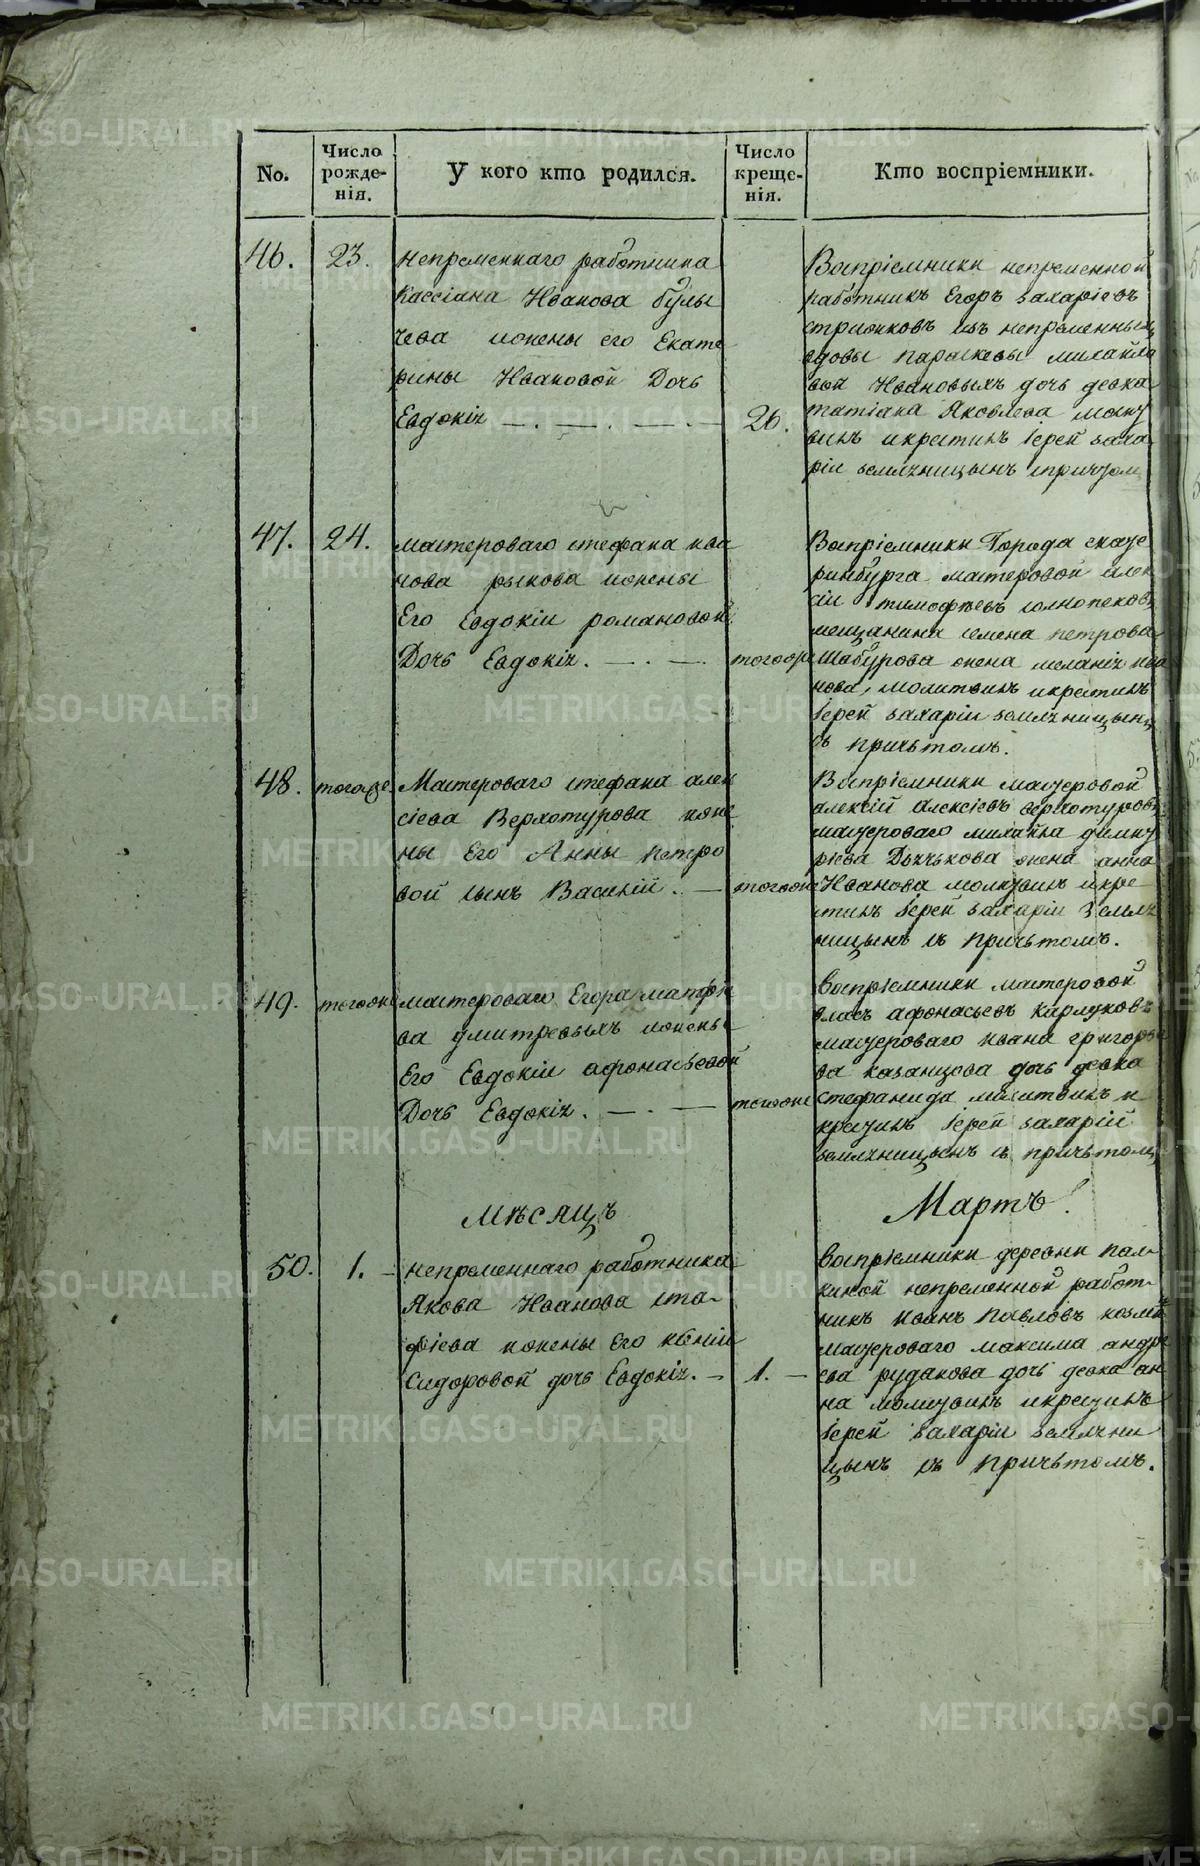 No.
Число рожде-нія.
У кого кто родился.
Число креще-нія.
Кто воспріемники.
46.
23.
непременнаго работника
Кассіана Иванова булы
чева ижены его Екате
рины Ивановой Дочь
Евдокія
26.
Воспріемники непременной
работникъ Егоръ захаріевъ
изъ непременныхъ
вдовы параскевы михайло
вой Ивановыхъ дочь девка
татіана Яковлева молит
вилъ икрестилъ іерей заха
рій земляницынъ спричтом
47.
24.
мастероваго стефана ива
нова рыкова ижены
Его Евдокіи романовой
Дочь Евдокія.
тогоже
Воспріемники Города екате
ринбурга мастеровой алек
сій тимофеевъ
мещанина семена петрова
Шабурова жена меланія ива
нова, молитвилъ икрестилъ
іерей захарій земляницынъ
съ причьтомъ.
48.
тогоже
Мастероваго стефана алек
сіева Верхотурова иже
ны Его Анны петро
вой сынъ Василій.
тогоже
Воспріемники мастеровой
алексій алексіевъ верхотуровъ
мастероваго михайла димит
ріева Дьячкова жена анна
Иванова молитвилъ икре
стилъ іерей захарій Земля
ницынъ съ причьтомъ.
49.
тогоже
мастероваго Егора матфи
ва дмитревыхъ ижены
Его Евдокіи афонасьевой
Дочь Евдокія.
тогоже
Воспріемники мастеровой
власъ афонасьевъ карлуковъ
мастероваго ивана григорье
ва казанцова дочь девка
стефанида молитвилъ и
крестилъ іерей захарій
земляницынъ съ причьтомъ
мѣсяцъ
Мартъ
50.
1.
непременнаго работника
Якова Иванова ста-
фіева ижены Его ксеніи
Сидоровой дочь Евдокія.
1.
Воспріемники деревни пал-
киной непременной работ-
никъ иванъ павловъ
мастероваго максима андре
ева рудакова дочь девка ан
на молитвилъ икрестилъ
іерей захарій земляни
цынъ съ причьтомъ.
METRIKI.GASO-URAL.RU